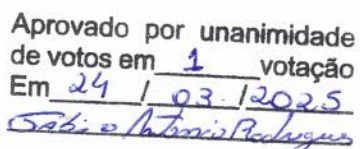 Aprovado por unanimidade
de votos em 1 votação
Em 24 / 03 / 2025
Fábio Antônio Rodrigues